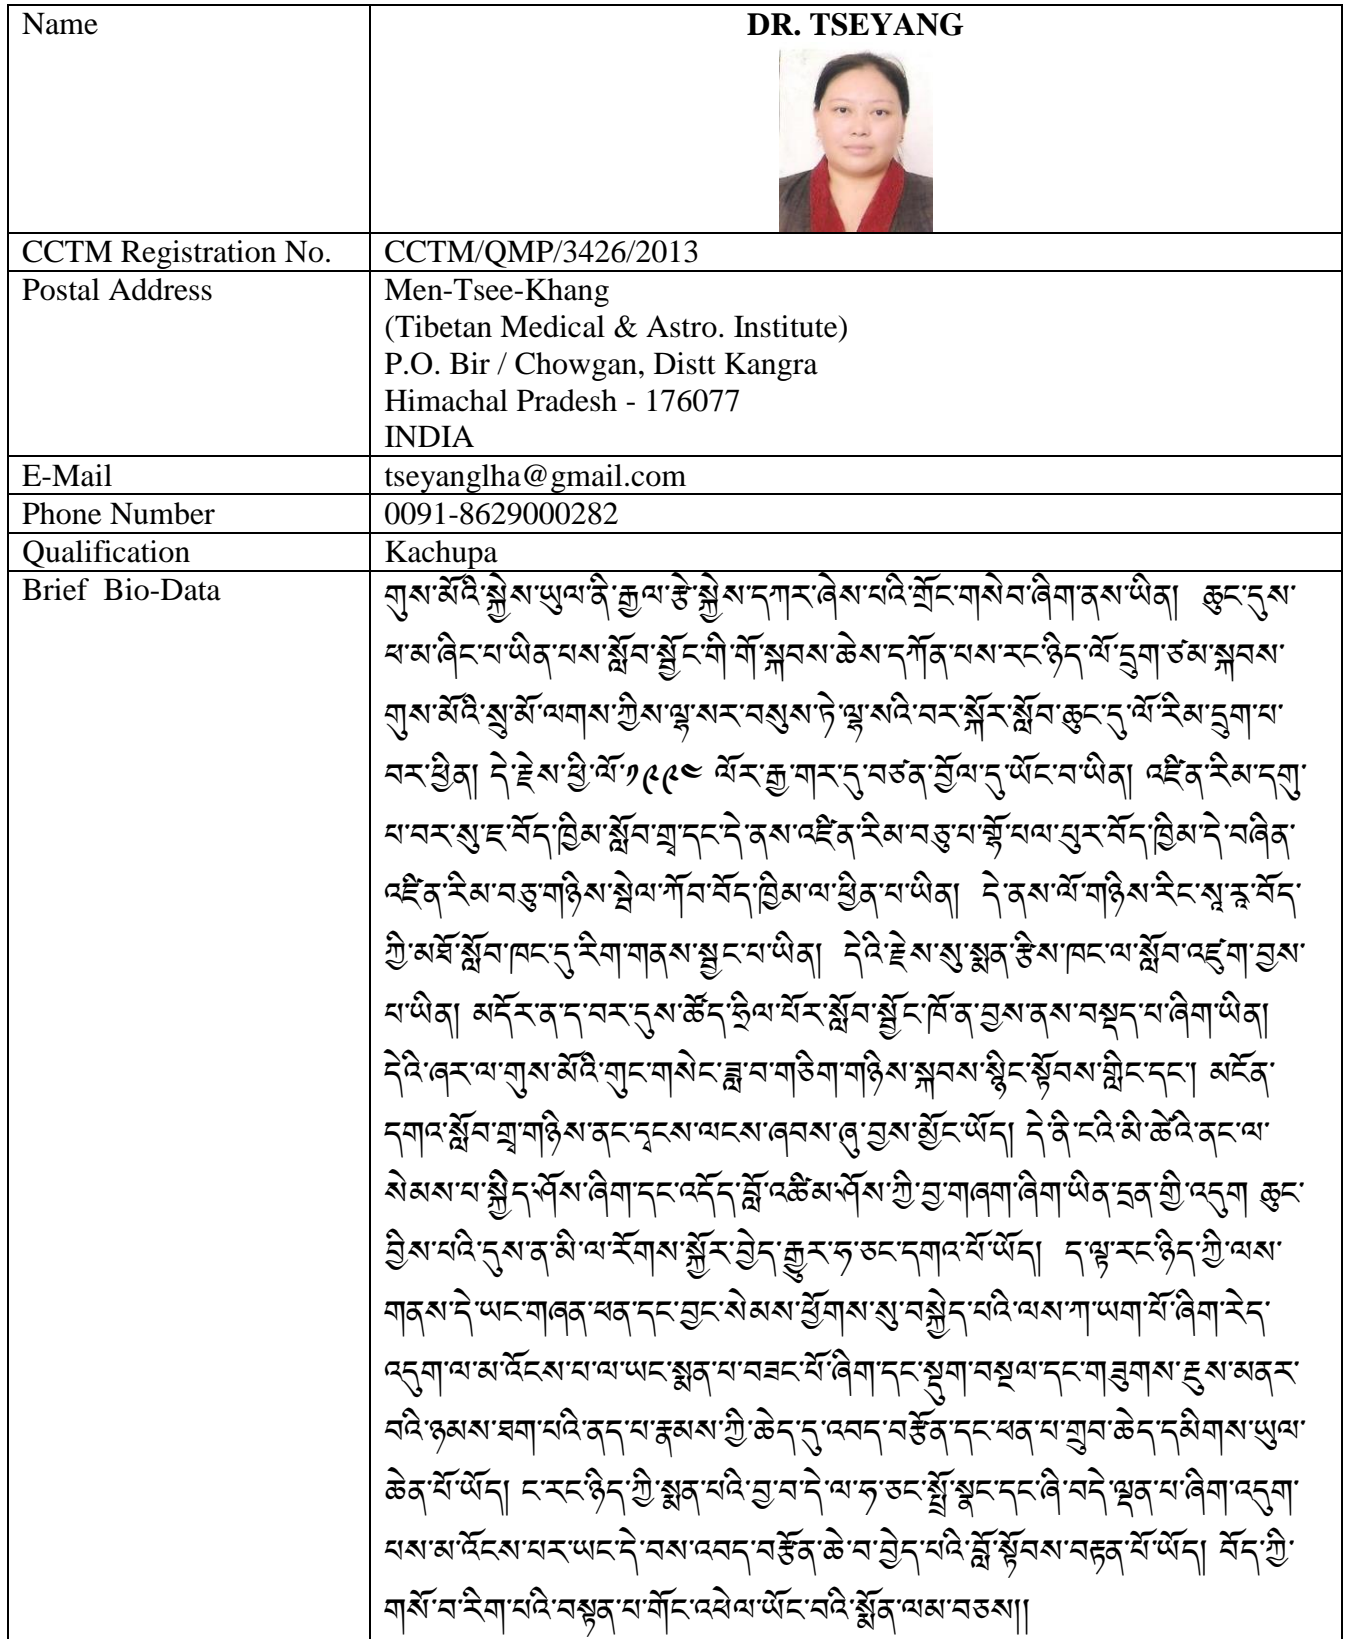 Name
DR. TSEYANG
CCTM Registration No.
CCTM/QMP/3426/2013
Postal Address
Men-Tsee-Khang
(Tibetan Medical & Astro. Institute)
P.O. Bir / Chowgan, Distt Kangra
Himachal Pradesh - 176077
INDIA
E-Mail
tseyanglha@gmail.com
Phone Number
0091-8629000282
Qualification
Kachupa
Brief Bio-Data
གུས་མོའི་སྐྱེས་ཡུལ་ནི་རྒྱལ་རྩེ་སྐྱེས་དཀར་ཞེས་པའི་གྲོང་གསེབ་ཞིག་ནས་ཡིན། ཆུང་དུས་
ཕ་མ་ཞིང་པ་ཡིན་པས་སློབ་སྦྱོང་གི་གོ་སྐབས་ཆེས་དཀོན་པས་རང་ཉིད་ལོ་དྲུག་ཙམ་སྐབས་
གུས་མོའི་སྲུ་མོ་ལགས་ཀྱིས་ལྷ་སར་བསུས་ཏེ་ལྷ་སའི་བར་སྐོར་སློབ་ཆུང་དུ་ལོ་རིམ་དྲུག་པ་
བར་ཕྱིན། དེ་རྗེས་ཕྱི་ལོ་༡༩༩༤ ལོར་རྒྱ་གར་དུ་བཙན་བྱོལ་དུ་ཡོང་བ་ཡིན། འཛིན་རིམ་དགུ་
པ་བར་སུ་ཇ་བོད་ཁྱིམ་སློབ་གྲྭ་དང་དེ་ནས་འཛིན་རིམ་བཅུ་པ་གོྷ་པལ་པུར་བོད་ཁྱིམ་དེ་བཞིན་
འཛིན་རིམ་བཅུ་གཉིས་སྦེལ་ཀོབ་བོད་ཁྱིམ་ལ་ཕྱིན་པ་ཡིན། དེ་ནས་ལོ་གཉིས་རིང་སཱ་རཱ་བོད་
ཀྱི་མཐོ་སློབ་ཁང་དུ་རིག་གནས་སྦྱང་པ་ཡིན། དེའི་རྗེས་སུ་སྨན་རྩིས་ཁང་ལ་སློབ་འཇུག་བྱས་
པ་ཡིན། མདོར་ན་ད་བར་དུས་ཚོད་ཧྲིལ་པོར་སློབ་སྦྱོང་ཁོ་ན་བྱས་ནས་བསྡད་པ་ཞིག་ཡིན།
དེའི་ཞར་ལ་གུས་མོའི་གུང་གསེང་ཟླ་བ་གཅིག་གཉིས་སྐབས་སྙིང་སྟོབས་གླིང་དང་། མངོན་
དགའ་སློབ་གྲྭ་གཉིས་ནང་དྭངས་ལངས་ཞབས་ཞུ་བྱས་མྱོང་ཡོད། དེ་ནི་ངའི་མི་ཚེའི་ནང་ལ་
སེམས་པ་སྐྱིད་ཤོས་ཞིག་དང་འདོད་བློ་འཚིམ་ཤོས་ཀྱི་བྱ་གཞག་ཞིག་ཡིན་དྲན་གྱི་འདུག ཆུང་
བྱིས་པའི་དུས་ན་མི་ལ་རོགས་སྐྱོར་བྱེད་རྒྱུར་ཧ་ཅང་དགའ་པོ་ཡོད། ད་ལྟ་རང་ཉིད་ཀྱི་ལས་
གནས་དེ་ཡང་གཞན་ཕན་དང་བྱང་སེམས་ཕྱོགས་སུ་བསྐྱེད་པའི་ལས་ཀ་ཡག་པོ་ཞིག་རེད་
འདུག་ལ་མ་འོངས་པ་ལ་ཡང་སྨན་པ་བཟང་པོ་ཞིག་དང་སྡུག་བསྔལ་དང་གཟུགས་རྔུས་མནར་
བའི་ཉམས་ཐག་པའི་ནད་པ་རྣམས་ཀྱི་ཆེད་དུ་འབད་བརྩོན་དང་ཕན་པ་གྲུབ་ཆེད་དམིགས་ཡུལ་
ཆེན་པོ་ཡོད། ང་རང་ཉིད་ཀྱི་སྨན་པའི་བྱ་བ་དེ་ལ་ཧ་ཅང་སྤྲོ་སྣང་དང་ཞི་བདེ་ལྡན་པ་ཞིག་འདུག་
པས་མ་འོངས་པར་ཡང་དེ་བས་འབད་བརྩོན་ཆེ་བ་བྱེད་པའི་བློ་སྟོབས་བརྟན་པོ་ཡོད། བོད་ཀྱི་
གསོ་བ་རིག་པའི་བསྟན་པ་གོང་འཕེལ་ཡོང་བའི་སྨོན་ལམ་བཅས།།